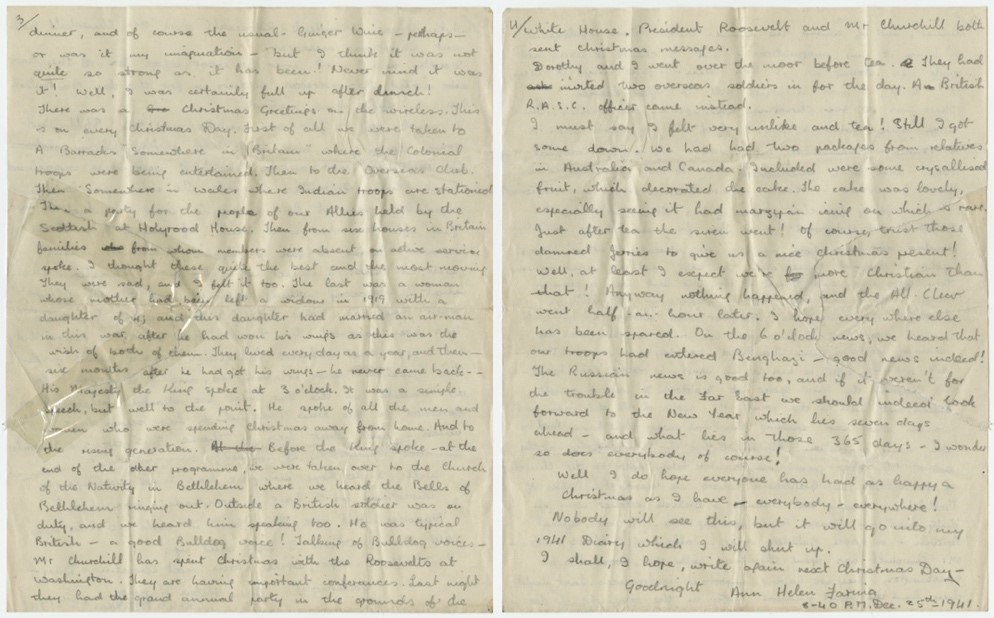 3/
dinner, and of course the usual - Ginger Wine - perhaps -
or was it my imagination - but I think it was not
quite so strong as it has been! Never mind it was
it! Well, I was certainly full up after lunch!
There was a Christmas Greetings on the wireless. This
is on every Christmas Day. First of all we were taken to
A Barracks "Somewhere in Britain" where the Colonial
troops were being entertained. Then to the Overseas Club.
Then "Somewhere in Wales where Indian troops are stationed
Then a party for the people of our Allies held by the
Scottish at Holyrood House. Then from six houses in Britain
families from whom members were absent on active service
spoke. I thought these quite the best and the most moving
They were sad, and I felt it too. The last was a woman
whose mother had been left a widow in 1919 with a
daughter of and this daughter had married an air-man
in this war, after he had won his wings as this was the
wish of both of them. They lived every day as a year, and then -
six months after he had got his wings - he never came back - -
His Majesty the King spoke at 3 o'clock. It was a simple
speech, but well to the point. He spoke of all the men and
women who were spending Christmas away from home. And to
the rising generation. Before the King spoke - at the
end of the other programme, we were taken over to the Church
of the Nativity in Bethlehem where we heard the Bells of
Bethlehem ringing out. Outside a British soldier was on
duty, and we heard him speaking too. He was typical
British - a good Bulldog voice! Talking of Bulldog voices -
Mr Churchill has spent Christmas with the Roosevelts at
Washington. They are having important conferences. Last night
they had the grand annual party in the grounds of the
4/ White House. President Roosevelt and Mr Churchill both
sent Christmas messages.
Dorothy and I went over the moor before tea. They had
invited two overseas soldiers in for the day. A British
R.A.S.C. officer came instead.
I must say I felt very unlike and tea! Still I got
some down. We had had two packages from relatives
in Australia and Canada. Included were some crysallised
fruit, which decorated the cake. The cake was lovely,
especially seeing it had marzipan icing on which is rare.
Just after tea the siren went! Of course, trust those
damned Jerries to give us a nice Christmas present!
Well, at least I expect we're more Christian than
that! Anyway nothing happened, and the All-Clear
went half-an-hour later. I hope every where else
has been spared. On the 6 o'clock news, we heard that
our troops had entered Benghazi - good news indeed!
The Russian news is good too, and if it weren't for
the trouble in the Far East we should indeed look
forward to the New Year which lies seven days
ahead - and what lies in those 365 days - I wonder
so does everybody of course!
Well I do hope everyone has had as happy a
Christmas as I have - everybody - everywhere!
Nobody will see this, but it will go into my
1941 Diary which I will shut up.
I shall, I hope, write again next Christmas Day -
Goodnight Ann Helen
8-40 P.M. Dec. 25th - 1941.